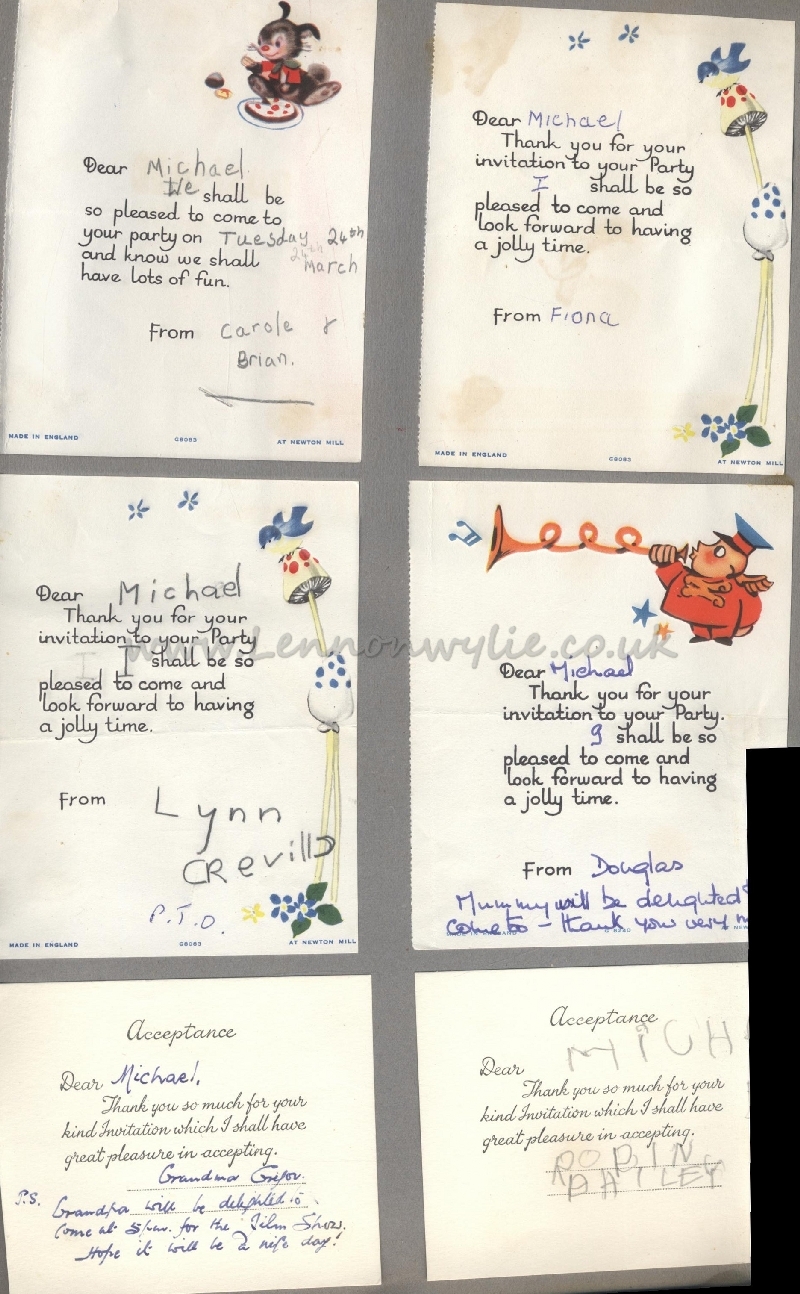 Dear Michael
We shall be
so pleased to come to
your party on Tuesday 24th
24th
and know we shall March
have lots of fun.
From Carole &
Brian.
MADE IN ENGLAND C8083 AT NEWTON MILL
Dear Michael
Thank you for your
invitation to your Party
I shall be so
pleased to come and
look forward to having
a jolly time.
From Fiona
MADE IN ENGLAND C8083 AT NEWTON MILL
Dear Michael
Thank you for your
invitation to your Party
I I shall be so
pleased to come and
look forward to having
a jolly time.
From Lynn
CRevills
P.T.O.
MADE IN ENGLAND C8083 AT NEWTON MILL
www.Lennonwylie.co.uk
Dear Michael
Thank you for your
invitation to your Party.
I shall be so
pleased to come and
look forward to having
a jolly time.
From Douglas
Mummy will be delighted
come too - thank you very
MADE IN ENGLAND
Acceptance
Dear Michael,
Thank you so much for your
kind Invitation which I shall have
great pleasure in accepting.
Grandma
P.S. Grandpa will be delighted to
come at 5p.m. for the Film Show.
Hope it will be a nice day!
Acceptance
Dear MICH
Thank you so much for your
kind Invitation which I shall have
great pleasure in accepting.
ROBIN
BAILEY